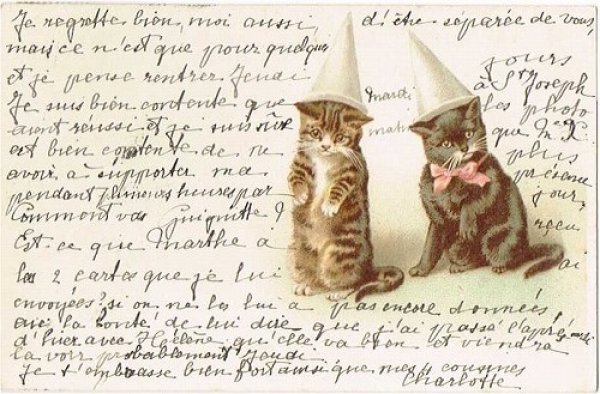 Je regrette bien, moi aussi, d'être séparée de vous,
mais ce n'est que pour quelques jours
et je pense rentrer Jeudi à St Joseph
Mardi
matin
Je suis bien contente que les photo
aient réussi et je suis sûre que Mr L.
est bien contente de ne plus
avoir à supporter ma présence
pendant plusieurs heures par jour.
Comment va Guignette ?
Est-ce que Marthe a reçu
les 2 cartes que je lui ai
envoyées; si on ne les lui a pas encore données,
aie la bonté de lui dire que j'ai passé l'après-midi
d'hier avec Hélène, qu'elle va bien et viendra
la voir probablement Jeudi.
Je t'embrasse bien fort ainsi que mes 4 cousines
Charlotte